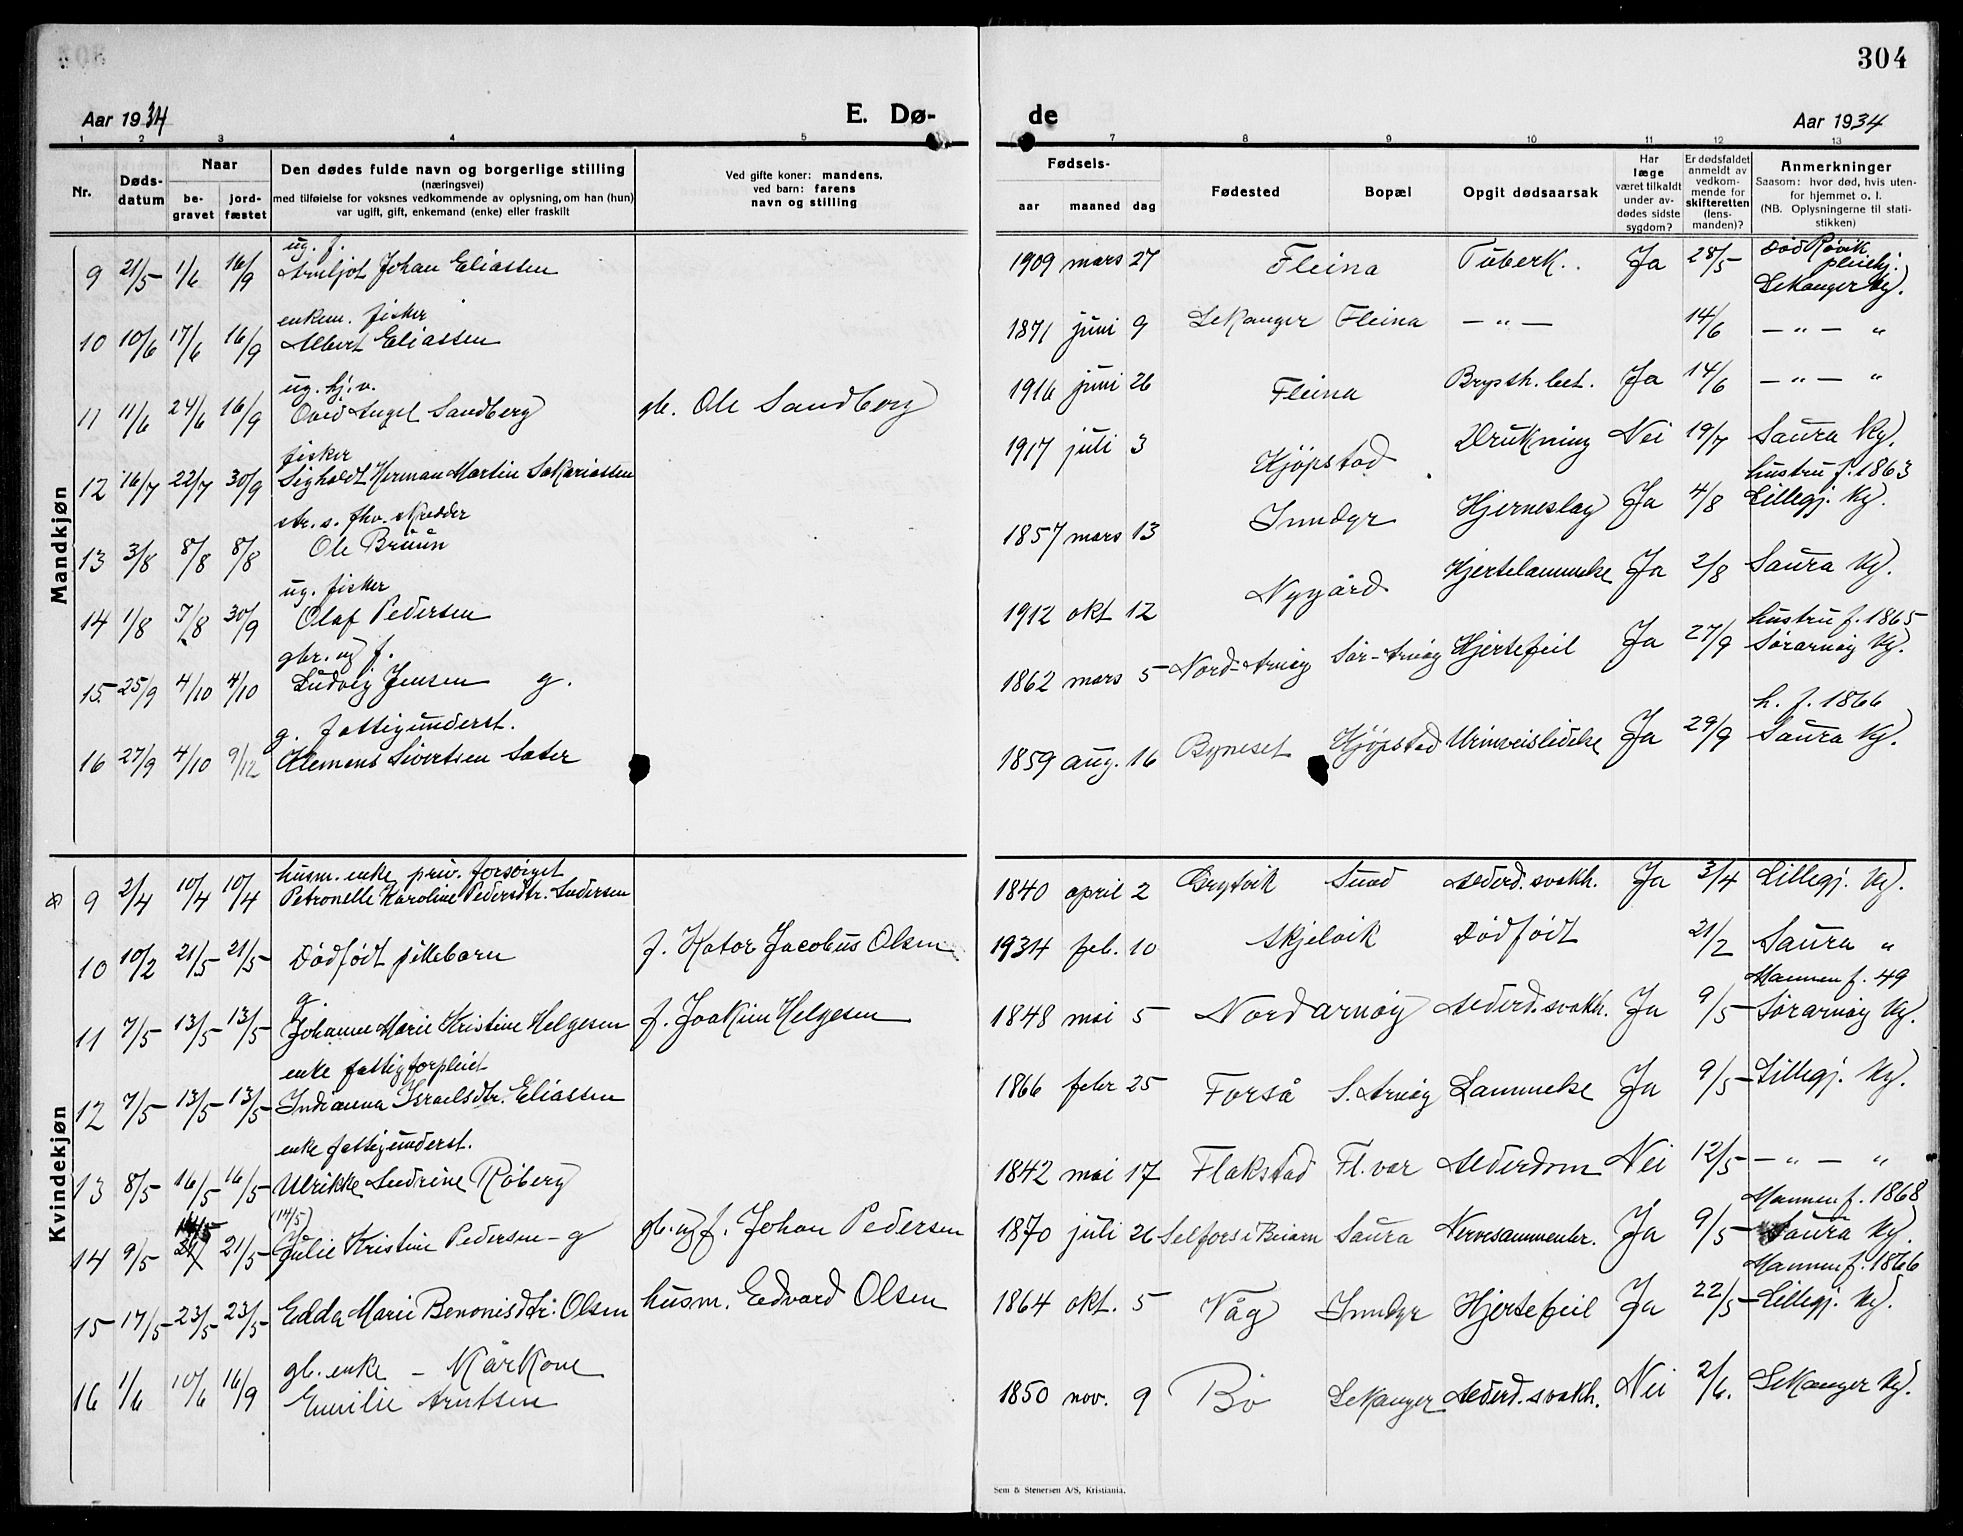 304
Aar 1934
E. Dø-
de
Aar 1934
1 2 3 4 5 7 8 9 10 11 12 13
Nr.
Døds-
datum
Naar
be-
gravet
jord-
fæstet
Den dødes fulde navn og borgerlige stilling
(næringsvei)
med tilføielse for voksnes vedkommende av oplysning, om han (hun)
var ugift, gift, enkemand (enke) eller fraskilt
Ved gifte koner: mandens,
ved barn: farens
navn og stilling
Fødsels-
aar maaned dag
Fødested
Bopæl
Opgit dødsaarsak
Har
læge
været tilkaldt
under av-
dødes sidste
sygdom?
Er dødsfaldet
anmeldt av
vedkom-
mende for
skifteretten
(lens-
manden)?
Anmerkninger
Saasom: hvor død, hvis uten-
for hjemmet o. l.
(NB. Oplysningerne til stati-
stikken)
Mandkjøn
ug. f.
9 21/5 1/6 16/9 Arnljot Johan Eliassen 1909 mars 27 Fleina Tuberk. Ja 28/5 Død Røvik
pleiehj.
Sekanger kg.
enkem. fisker
10 10/6 17/6 16/9 Albert Eliassen 1871 juni 9 Sekanger Fleina — " — 14/6 — " — "
ug. hj. v.
11 11/6 24/6 16/9 Ovid Angel Sandberg gb. Ole Sandberg 1916 juni 26 Fleina Brysth. bet. Ja 14/6 — " — "
fisker
12 16/7 22/7 30/9 Sigholdt Herman Martin Sakariassen 1917 juli 3 Kjøpstad Drukning Nei 19/7 Saura kg.
str. s. fhv. skredder hustru f. 1863
13 3/8 8/8 8/8 Ole Bruun 1857 mars 13 Inndyr Hjerneslag Ja 4/8 Lillegj. kg.
ug. fisker
14 1/8 7/8 30/9 Olaf Pedersen 1912 okt 12 Nygård Hjertelammelse Ja 2/8 Saura kg.
gbr. og f. hustru f. 1865
15 25/9 4/10 4/10 Ludvig Jensen g. 1862 mars 5 Nord-Arnøy Sør-Arnøy Hjertefeil Ja 27/9 Sørarnøy kg.
g. fattigunderst. h. f. 1866
16 27/9 4/10 9/12 Klemens Sivertsen Sæter 1859 aug. 16 Byneset Kjøpstad Urinveislidelse Ja 29/9 Saura kg.
Kvindekjøn
husm. enke priv. forsørget
9 2/4 10/4 10/4 Petronelle Karoline Pedersdtr. Andersen 1840 april 2 Brytvik Sund Alderd. svakh. Ja 3/4 Lillegj. kg.
10 10/2 21/5 21/5 Dødfødt pikebarn f. Kator Jacobus Olsen 1934 feb. 10 Skjelvik Dødfødt 21/2 Saura "
g. Mannen f. 49
11 7/5 13/5 13/5 Johanne Marie Kristine Helgesen f. Joakim Helgesen 1848 mai 5 Nordarnøy Alderd. svakh. Ja 9/5 Sørarnøy kg.
enke fattigforpleiet
12 7/5 13/5 13/5 Indianna Israelsdtr. Eliassen 1866 febr 25 Forså S. Arnøy Lammelse Ja 9/5 Lillegj. kg.
enke fattigunderst.
13 8/5 16/5 16/5 Ulrikke Andrine Røberg 1842 mai 17 Flakstad Fl. vær Alderdom Nei 12/5 — " — "
14/5 (14/5) Mannen f. 1868
14 9/5 21/5 Julie Kristine Pedersen - g gb. og f. Johan Pedersen 1870 juli 26 Selfors i Beiarn Saura Nervesammenbr. Ja 9/5 Saura kg.
Mannen f. 1866
15 17/5 23/5 23/5 Edda Marie Benonisdtr. Olsen husm. Edvard Olsen 1864 okt. 5 Våg Inndyr Hjertefeil Ja 22/5 Lillegj. kg.
gb. enke - Kårkone
16 1/6 10/6 16/9 Emilie Arntsen 1850 nov. 9 Bø Sekanger Alderd. svakh. Nei 2/6. Sekanger kg.
Sem & Stenersen A/S, Kristiania.